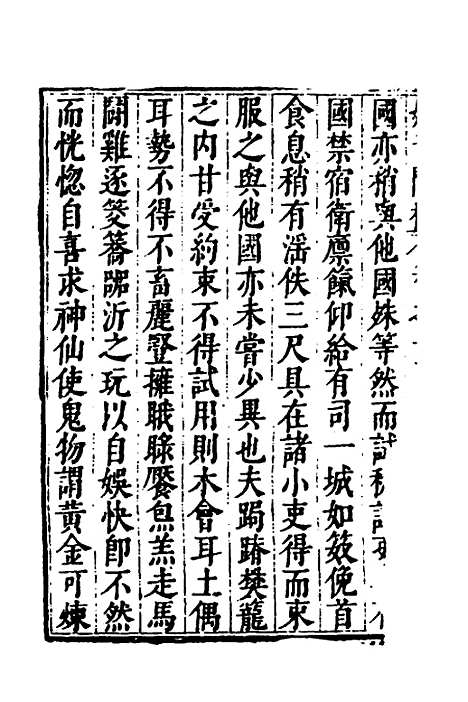 國亦稍與他國殊等然而
國禁宿衛廪餼仰給有司一城如笯俛首
食息稍有滛佚三尺具在諸小吏得而束
服之與他國亦未嘗少異也夫跼蹐樊籠
之内甘受約束不得試用則木會耳土偶
耳勢不得不畜麗豎擁聀䏁饜炰羔走馬
鬭雞逐筊蕎䠋沂之玩以自娛快即不然
而恍惚自喜求神仙使鬼物謂黄金可煉